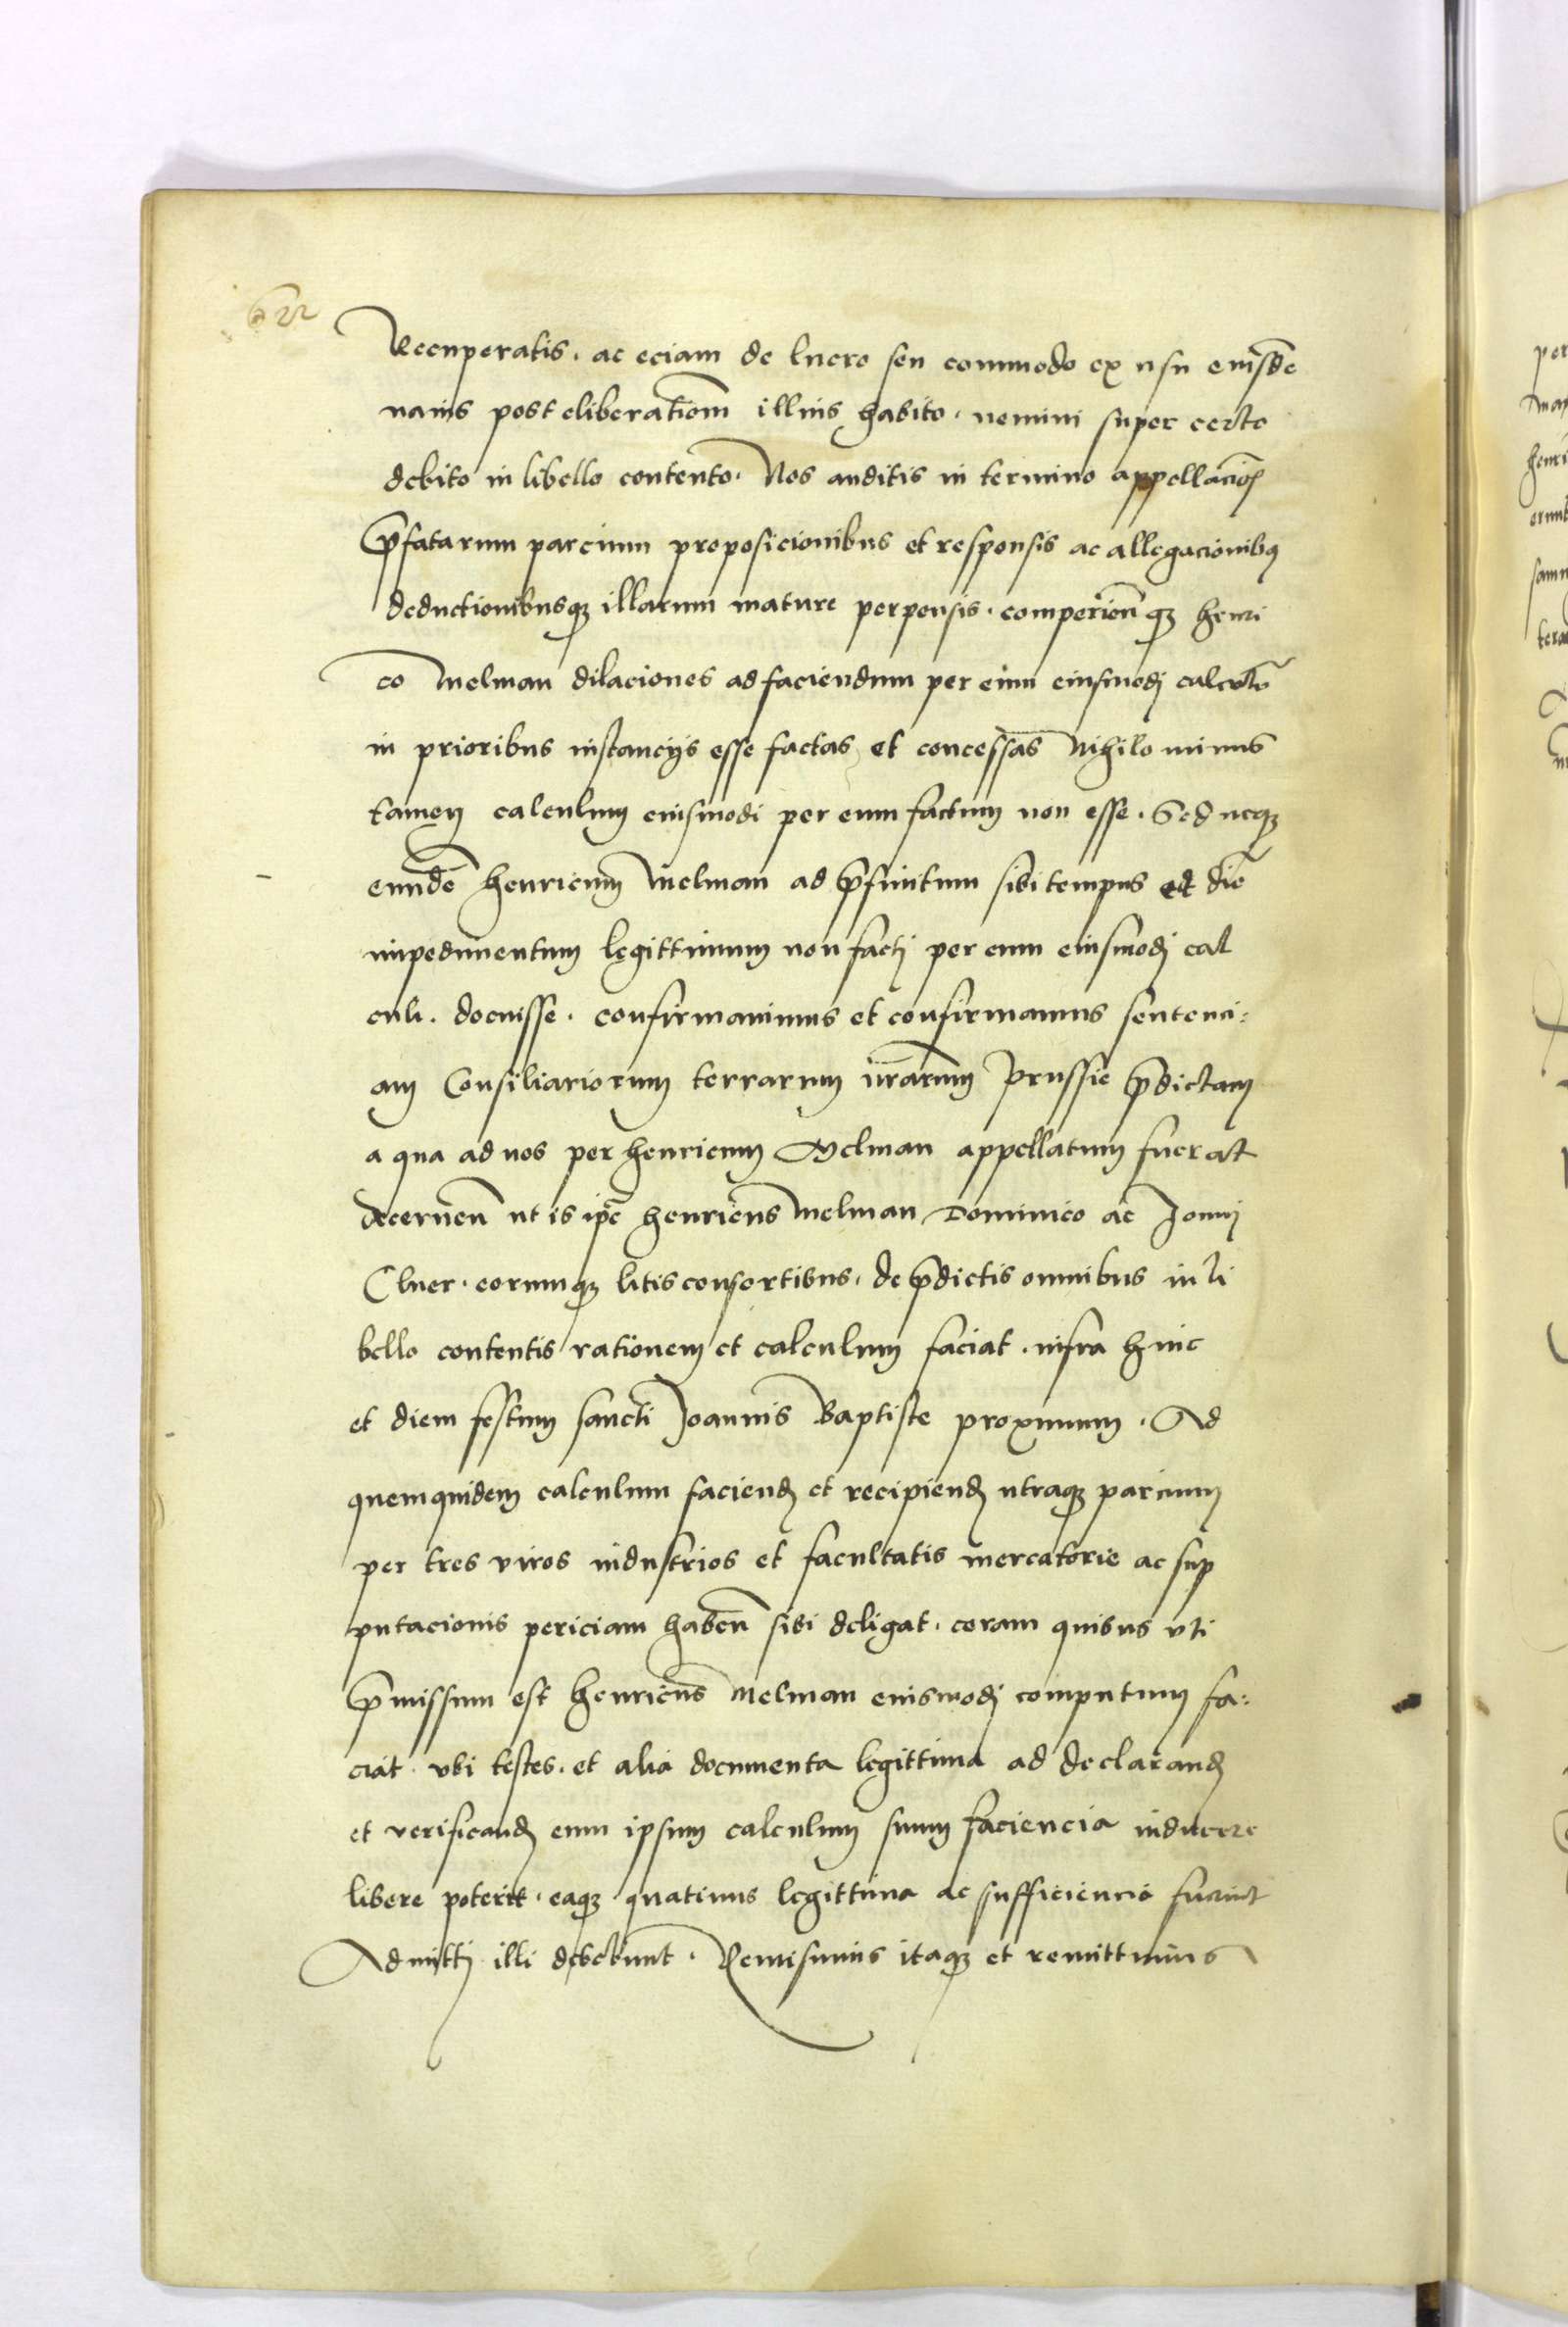 622
Recuperatis. ac eciam de lucro seu commodo ex usu eiusdē
navis post eliberatioēm illius habito. nemini super certo
debito in libello contento. Nos auditis in termino appellaciōis
p̄fatarum parcium proposicionibus et responsis ac allegacionibus
deductionibusqz illarum mature perpensis. comperienn̄ qz henri
co Melman dilaciones ad faciendum per eum eiusmodj calculū
in prioribus instancijs esse factas et concessas Nihilo minus
tamen calculum eiusmodi per eum factum non esse. Sed neqz
eundē henricum Melman ad p̄finitum sibi tempus et diē
impedimentum legittimum non factj per eum eiusmodj cal
culi. docuisse. confirmavimus et confirmamus sentenci:
am Consiliariorum terrarum nr̄arum Prussie p̄dictam
a qua ad nos per henricum Melman appellatum fuerat
decernen̄ ut is ip̄e henricus Melman Dominico ac Joannj
Cluer. eorumqz litis consortibus. de p̄dictis omnibus in li
bello contentis rationem et calculum faciat. infra hinc
et diem festum sancti Joannis Baptiste proximum. Ad
quemquidem calculum faciend et recipiend utraqz parcium
per tres viros industrios et facultatis mercatorie ac sup
putacionis periciam haben̄ sibi deligat. coram quibus uti
p̄missum est henricus Melman eiusmodj computum fa:
ciat. ubi testes. et alia documenta legittima ad declarand
et verificand eum ipsum calculum suum faciencia inducere
libere poterit. eaqz quatinus legittima ac sufficiencia fuerint
Admittj illi debebunt. Remisimus itaqz et remittimus